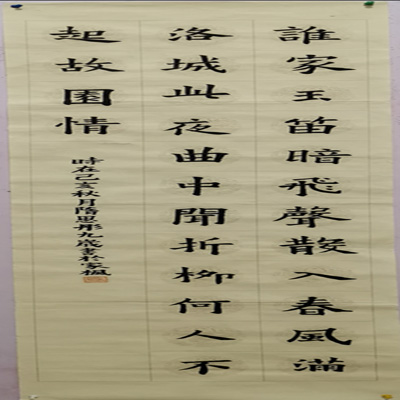 誰家玉笛暗飛聲散入春風滿
洛城此夜曲中聞折柳何人不
起故園情
時在己亥秋月隋思彤九歲書於家